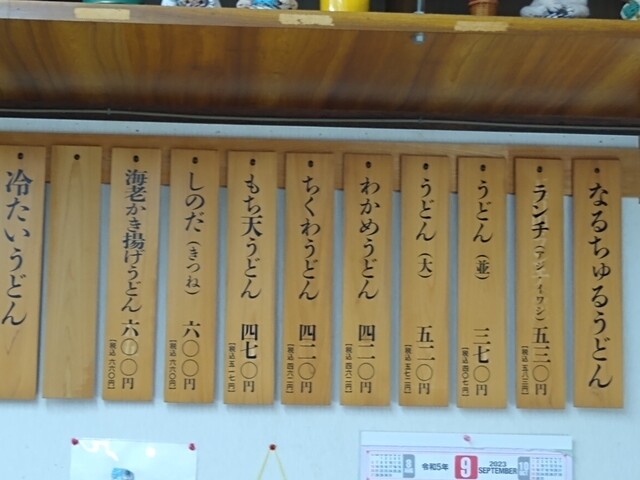 なるちゅるうどん
ランチ（アジ・イワシ）五三〇円
［税込 五八三円］
うどん（並）三七〇円
［税込 四〇七円］
うどん（大）五二〇円
［税込 五七二円］
わかめうどん 四二〇円
［税込 四六二円］
ちくわうどん 四二〇円
［税込 四六二円］
もち天うどん 四七〇円
［税込 五一七円］
しのだ（きつね）六〇〇円
［税込 六六〇円］
海老かき揚げうどん 六〇〇円
［税込 六六〇円］
冷たいうどん
8
令和5年 9 2023 SEPTEMBER
10